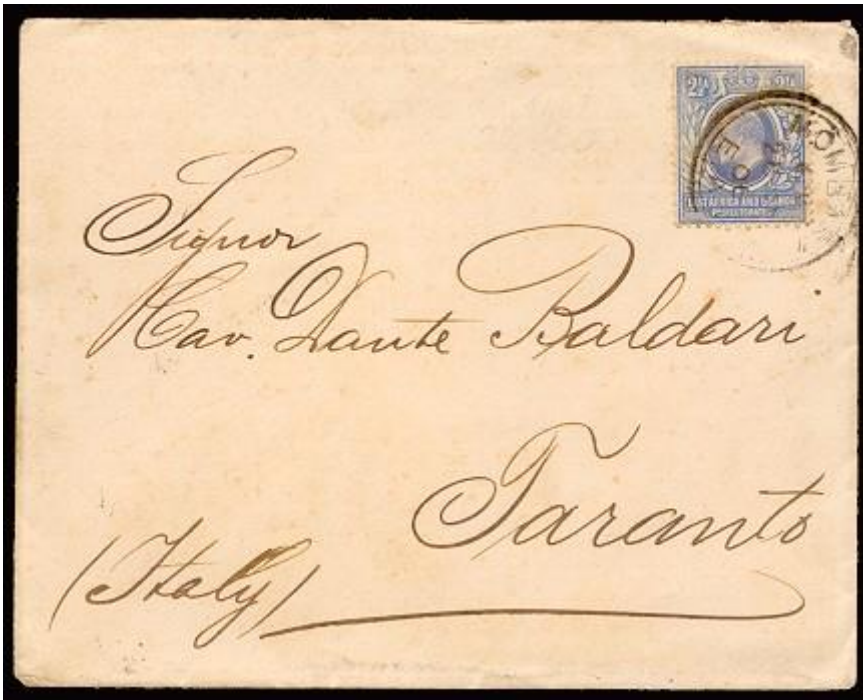 2½
EAST AFRICA AND UGANDA
PROTECTORATES
MOMBASA
Signor
Cav. Dante Baldari
Taranto
(Italy)